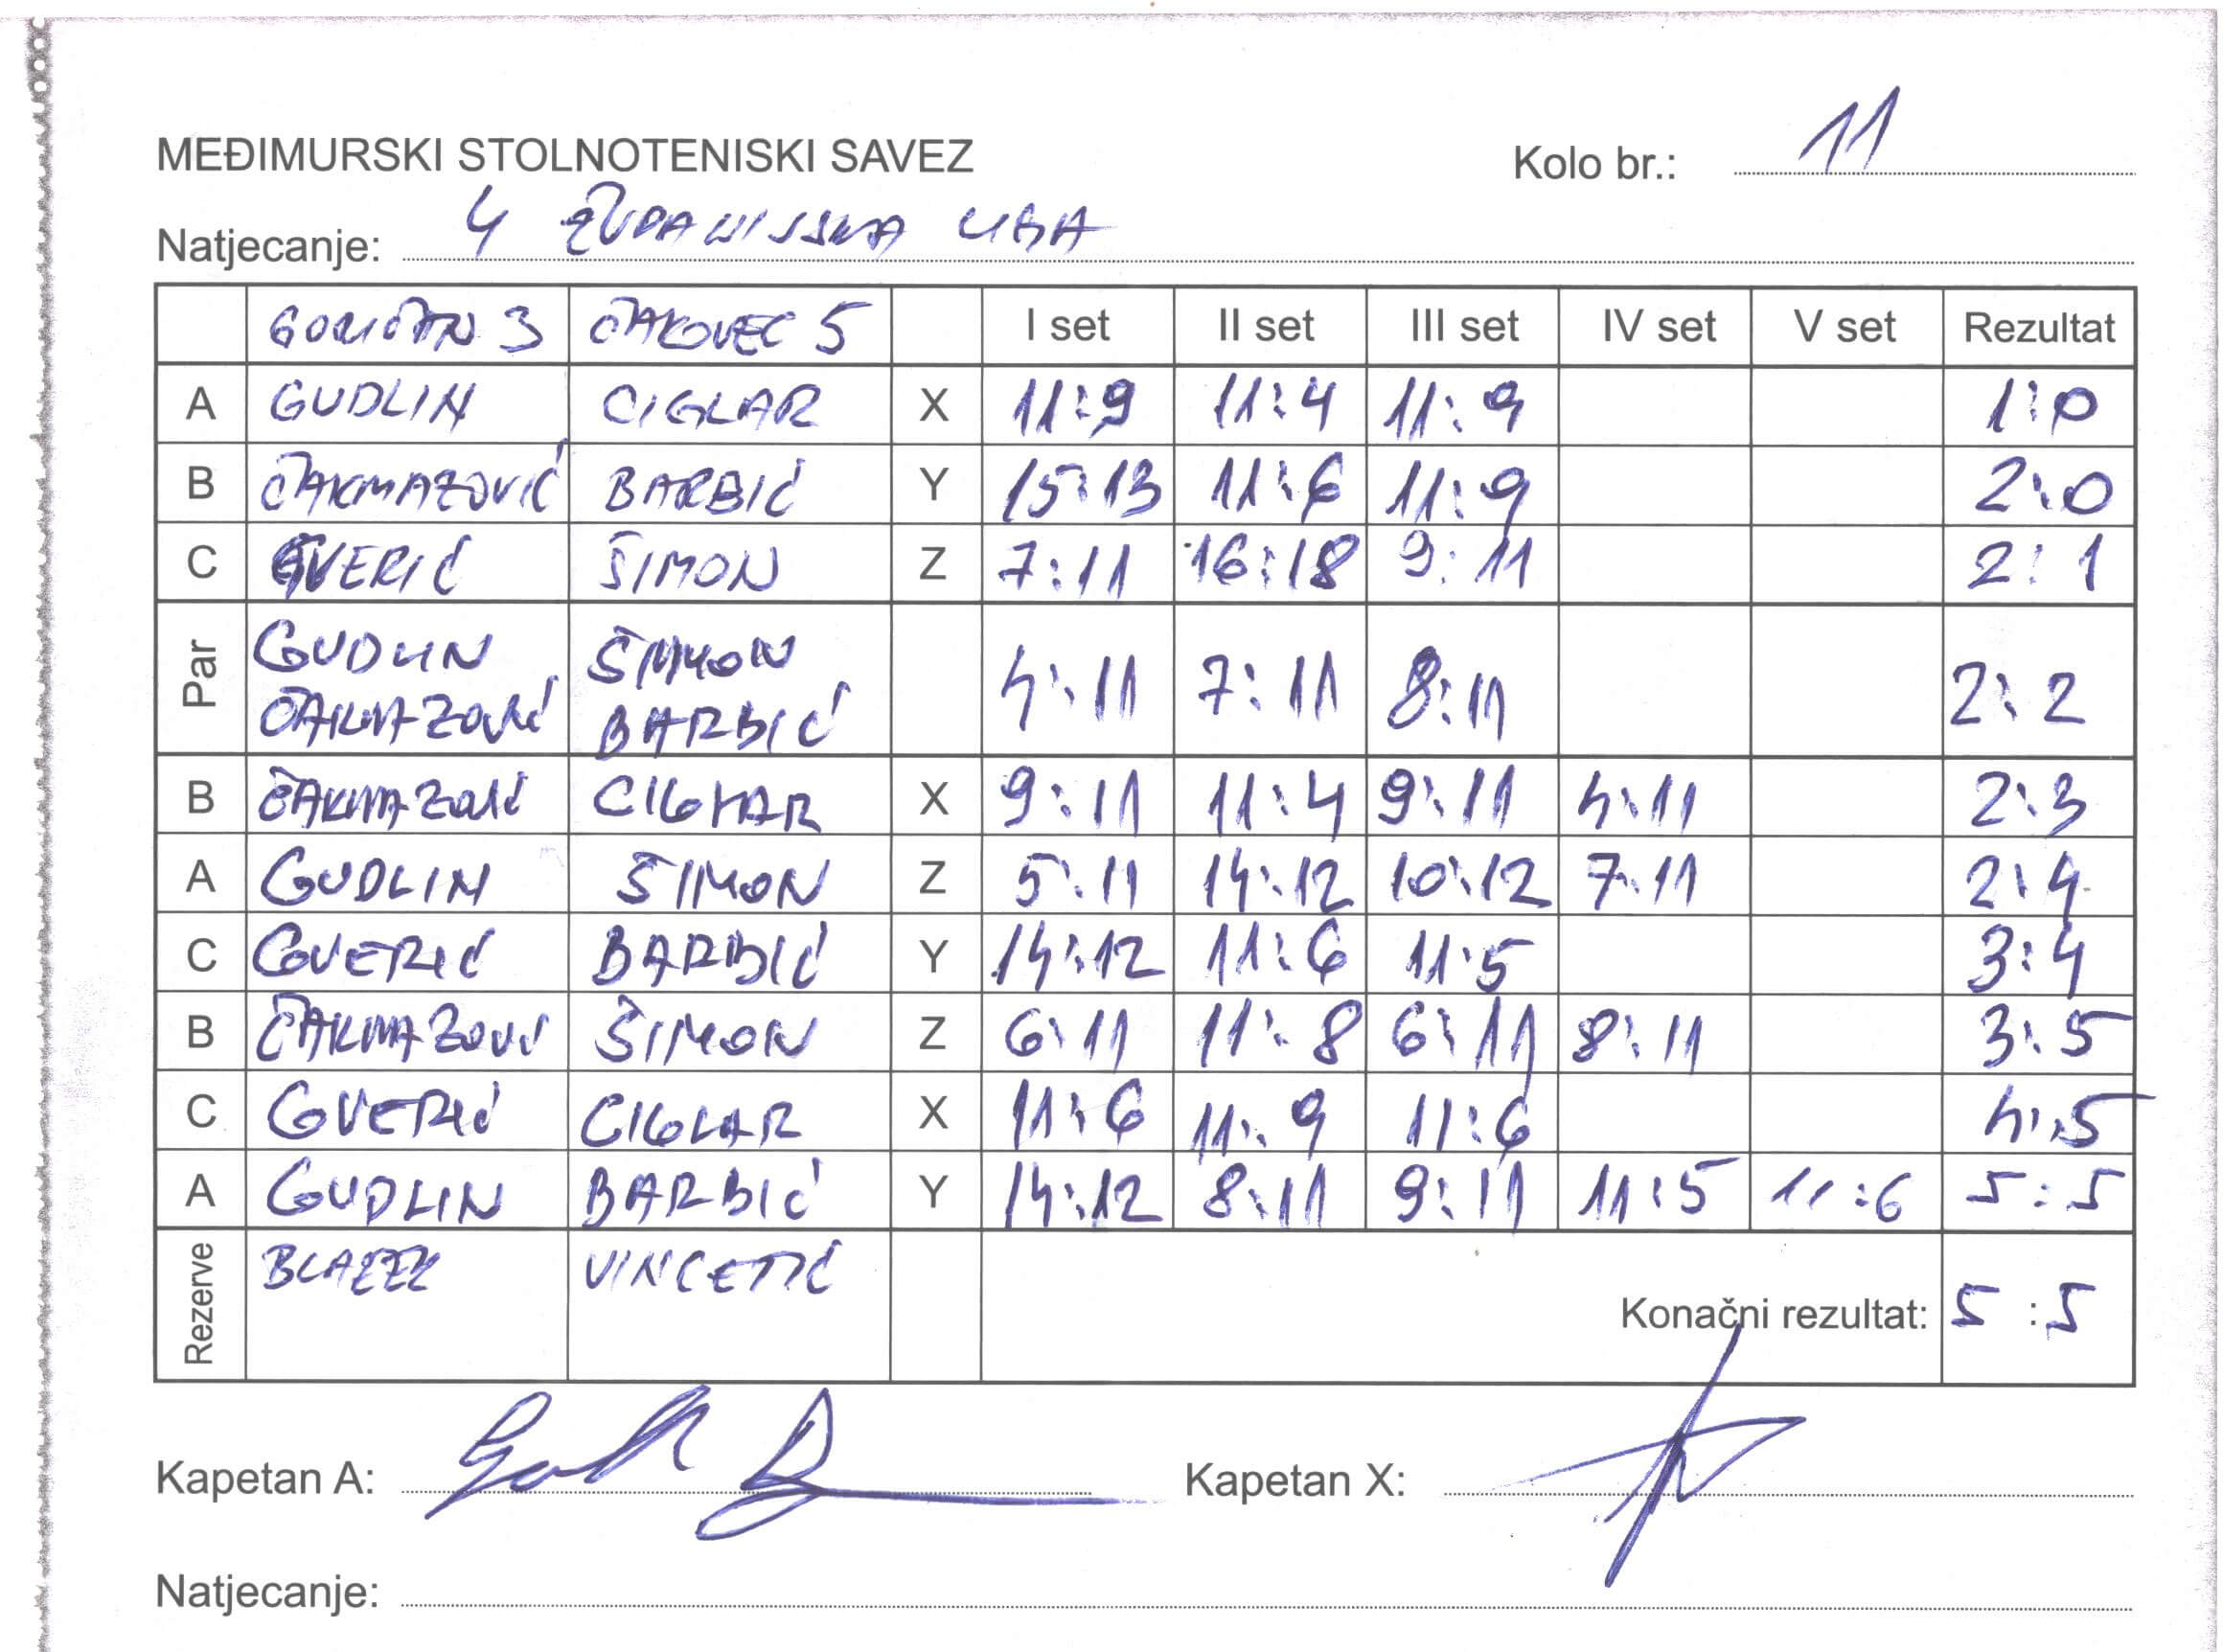 MEĐIMURSKI STOLNOTENISKI SAVEZ
Kolo br.: 11
Natjecanje: 4 ŽUPANIJSKA LIGA
GORIČAN 3 ČAKOVEC 5 I set II set III set IV set V set Rezultat
A GUDLIN CIGLAR X 11:9 11:4 11:9 1:0
B ČAKMAZOVIĆ BARBIĆ Y 15:13 11:6 11:9 2:0
C GVERIĆ ŠIMON Z 7:11 16:18 9:11 2:1
Par GUDLIN ŠIMON 4:11 7:11 8:11 2:2
ČAKMAZOVIĆ BARBIĆ
B ČAKMAZOVIĆ CIGLAR X 9:11 11:4 9:11 4:11 2:3
A GUDLIN ŠIMON Z 5:11 14:12 10:12 7:11 2:4
C GVERIĆ BARBIĆ Y 14:12 11:6 11:5 3:4
B ČAKMAZOVIĆ ŠIMON Z 6:11 11:8 6:11 8:11 3:5
C GVERIĆ CIGLAR X 11:6 11:9 11:6 4:5
A GUDLIN BARBIĆ Y 14:12 8:11 9:11 11:5 11:6 5:5
Rezerve BLAŽEK VINCETIĆ
Konačni rezultat: 5:5
Kapetan A: Kapetan X:
Natjecanje: